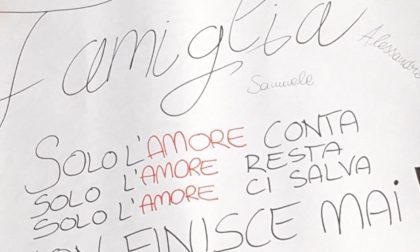 Famiglia
Samuele
Alessandra
SOLO L'AMORE CONTA
SOLO L'AMORE RESTA
SOLO L'AMORE CI SALVA
FINISCE MAI